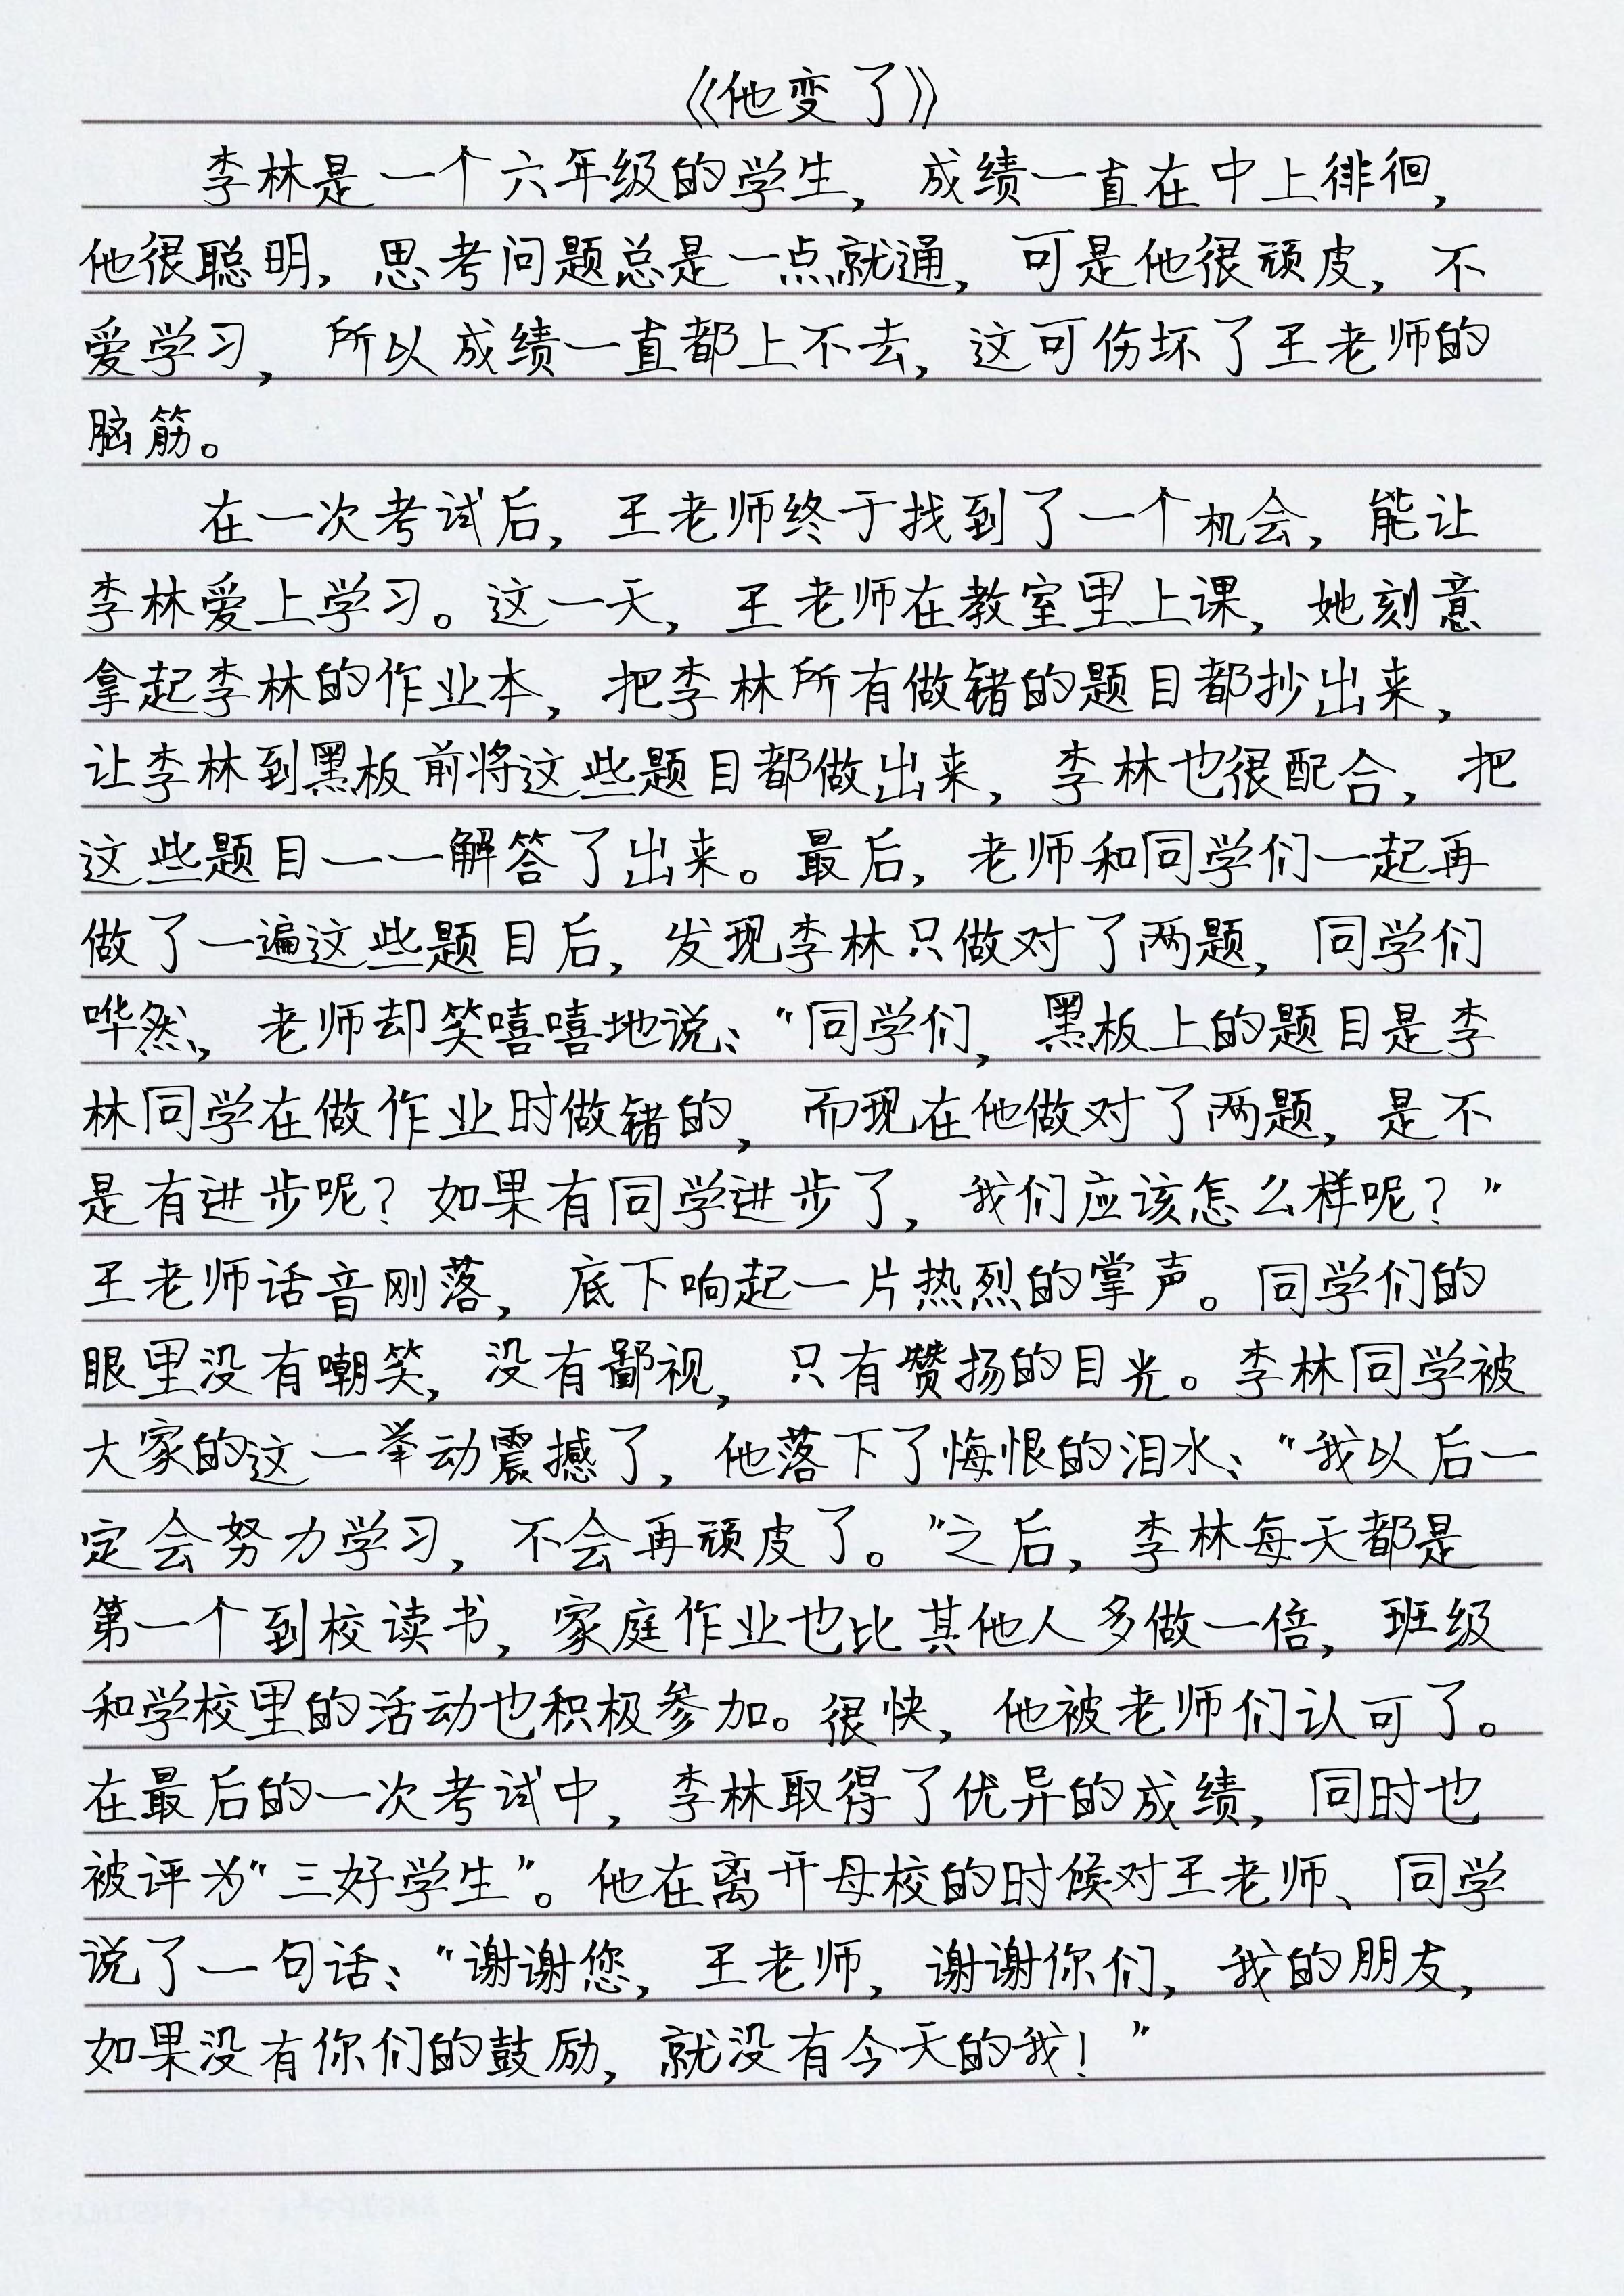 《他变了》
李林是一个六年级的学生，成绩一直在中上徘徊，
他很聪明，思考问题总是一点就通，可是他很顽皮，不
爱学习，所以成绩一直都上不去，这可伤坏了王老师的
脑筋。
在一次考试后，王老师终于找到了一个机会，能让
李林爱上学习。这一天，王老师在教室里上课，她刻意
拿起李林的作业本，把李林所有做错的题目都抄出来，
让李林到黑板前将这些题目都做出来，李林也很配合，把
这些题目一一解答了出来。最后，老师和同学们一起再
做了一遍这些题目后，发现李林只做对了两题，同学们
哗然，老师却笑嘻嘻地说：“同学们，黑板上的题目是李
林同学在做作业时做错的，而现在他做对了两题，是不
是有进步呢？如果有同学进步了，我们应该怎么样呢？”
王老师话音刚落，底下响起一片热烈的掌声。同学们的
眼里没有嘲笑，没有鄙视，只有赞扬的目光。李林同学被
大家的这一举动震撼了，他落下了悔恨的泪水：“我以后一
定会努力学习，不会再顽皮了。”之后，李林每天都是
第一个到校读书，家庭作业也比其他人多做一倍，班级
和学校里的活动也积极参加。很快，他被老师们认可了。
在最后的一次考试中，李林取得了优异的成绩，同时也
被评为“三好学生”。他在离开母校的时候对王老师、同学
说了一句话：“谢谢您，王老师，谢谢你们，我的朋友，
如果没有你们的鼓励，就没有今天的我！”